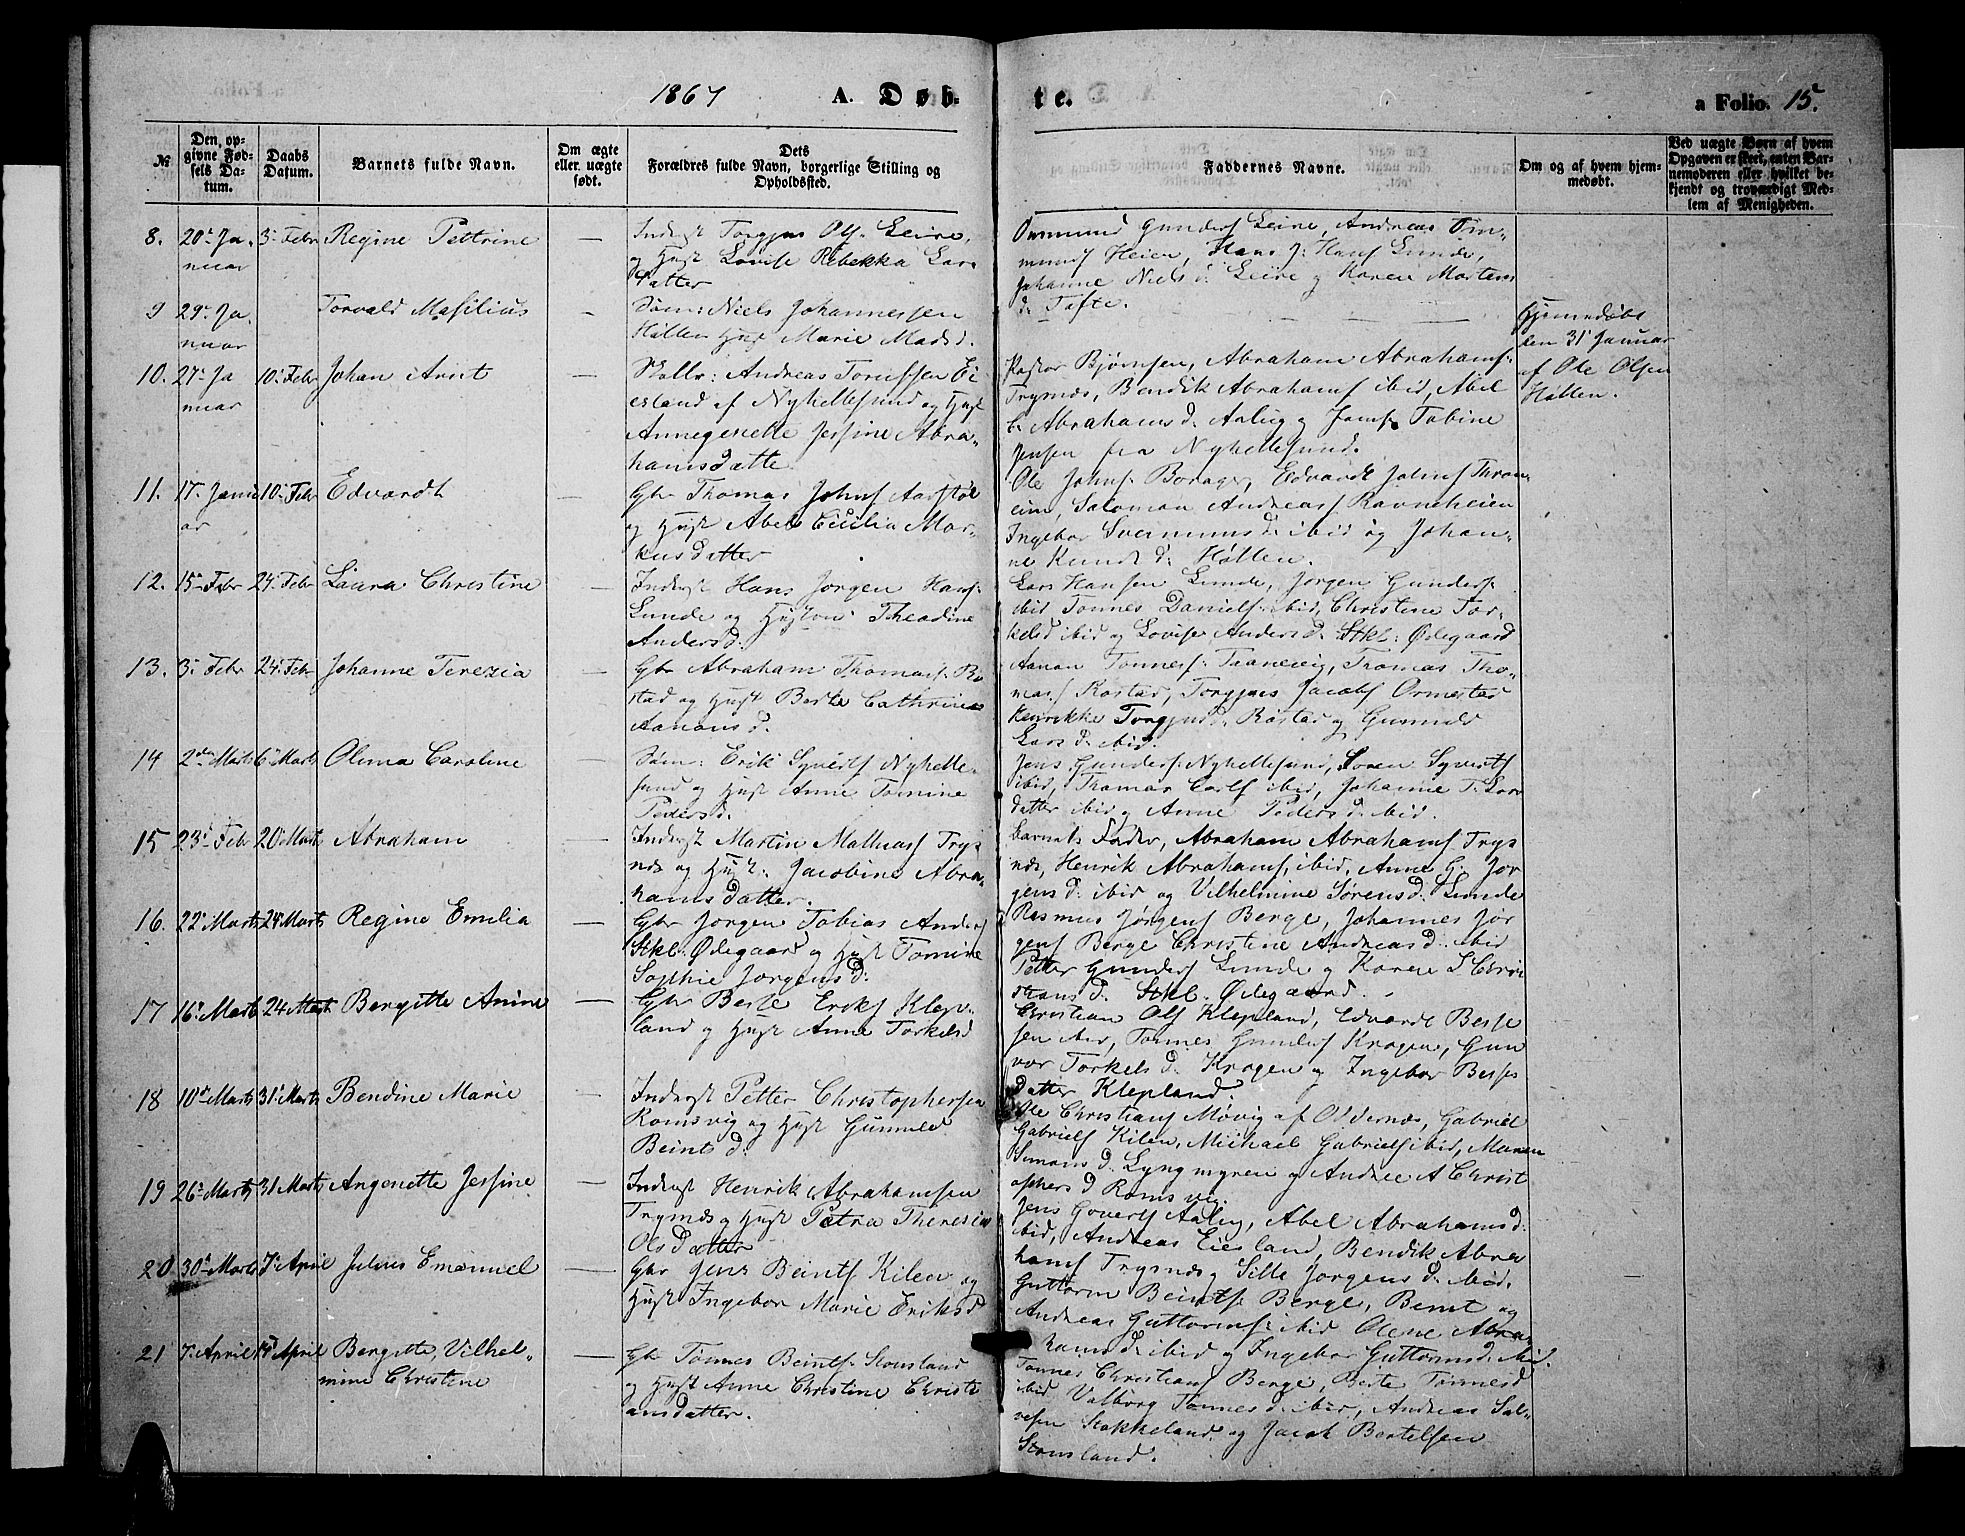 1867 A. Døb-
te.
a Folio. 15.
№
Den op-
givne Fød-
sels Da-
tum.
Daabs
Datum.
Barnets fulde Navn.
Om ægte
eller uægte
født.
Dets
Forældres fulde Navn, borgerlige Stilling og
Opholdssted.
Faddernes Navne.
Om og af hvem hjem-
medøbt.
Ved uægte Børn af hvem
Opgaven er skeet, enten Bar-
nemoderen eller hvilket be-
kjendt og troværdigt Med-
lem af Menigheden.
8. 20de Ja-
nuar
3die Febr
Regine Pettrine
—
Inderst Torgjus Ols. Leire,
og Hust Lovise Rebekka Lars
Datter
Osmund Gunders Leire, Andreas Om-
munds Heien, Hans J: Hans Lunde,
Johanne Niels d: Leire og Karen Mortens
d: Tofte.
9 29de Ja
nuar
Torvald Masilius
—
Søm: Niels Johannessen
Hølten Hust Marie Mads d.
Hjemmedøbt
den 31 Januar
af Ole Olsen
Hølten.
10. 27de Ja
nuar
10de Febr
Johan Arnt
—
Andreas Torussen Ei
esland af Nyhellesund og Hust
Annegenette Jessine Abra-
hams Datte
Pastor Bjørnsen, Abraham Abrahams:
Trysnæs, Bendik Abrahams ibid, Abel
C. Abrahams d. Aalug og Tobine
Jensen fra Nyhellesund.
11. 17. Janu
ar
10de Febr
Edvardt
—
Gbr Thomas Johns
og Hust Abel Cicilia Mar-
kus Datter
Ole Johns: Edvardt Johns Thron-
eim, Salomon Andreas Ravneheien
Ingebor d: ibid og Johan-
ne Knuds d: Hølten.
12. 15de Febr
24de Febr
Laura Christine
—
Inderst Hans Jørgen Hans:
Lunde og Hustru Theadine
Anders d:
Lars Hansen Lunde, Jørgen Gunders:
ibid Tønnes Daniels: ibid, Christine Tor-
kelsd ibid og Lovise Anders d. Stkl: Ødegaard
13. 3de Febr
24de Febr
Johanne Terezia
—
Gbr Abraham Thomas: Ro
stad og Hust Berte Cathrine
Aanons d.
Aanon Tønnes: Taanevig, Thomas Tho-
mas Rostad, Torgjus Jacobs Ormestad
Henrikke Torgjus d: Rostad og Gunnild
Lars d: ibid.
14 2den Marts
6te Marts
Olena Caroline
—
Søm: Erik Syverts Nyhelle-
sund og Hust Anne Tomine
Peders d.
Jens Gunders: Nyhellesund, Soren Syverts
ibid, Thomas Carls ibid, Johanne T. Lars
datter ibid og Anne Peders d: ibid.
15 23de Feb
20de Marts
Abraham
—
Inderst Martin Mathias Trys
næs og Hust: Jacobine Abra-
hams datter.
barnets Fader, Abraham Abrahams Trys
næs, Henrik Abrahams, ibid, Anne G: Jør
gens d: ibid og Vilhelmine Sørens d: Lunde
16. 22de Marts
24de Marts
Regine Emilia
—
Gbr Jørgen Tobias Anders
Stkl. Ødegaard og Hust Tomine
Sophie Jørgens d:
Rasmus Jørgens Berge, Johannes Jør
gens Berge Christine Andreas d: ibid
Petter Gunders Lunde og Karen S. Chris
tians d. Stkl. Ødegaard.
17 16de Marts
24 Marts
Bergitte Anine
—
Gbr Berte Eriks Klep-
land og Hust Anne Torkels d
Christian Ols Klepland, Edvardt Besse
sen ibid, Tønnes Gunders Kragen, Gun
vor Torkels d: Kragen og Ingebor Besses
datter Klepland.
18 10de Marts
31te Marts
Bendine Marie
—
Inderst Petter Christophersen
Romsvig og Hust Gunnild
Beints d.
Ole Christians Møvig af Oldernæs, Gabriel
Gabriels Kilen, Michael Gabriels ibid, Maren
Simons d. Lyngmyren og Andree A Christ
ophers d Romsvig.
19 26de Marts
31 Marts
Angenette Jessine
—
Inderst Henrik Abrahamsen
Trysnæs og Hust Petra Theresia
Ols Datter
Jens Goverts Aalug, Abel Abrahams d:
ibid, Andreas Eiesland, Bendik Abra
hams Trysnæs og Sille Jørgens d: ibid.
20 30te Marts
7de April
Julius Emanuel
—
Gbr Jens Beints Kilen og
Hust Ingebor Marie Eriks d
Guttorm Beints Berge, Bernt og
Andreas Guttorms: ibid Olene Abra-
hams d: ibid og Ingebor Guttorms d: ibid.
21 7de April
14 April
Bergitte, Vilhel-
mine Christine
—
Gbr Tønnes Beints: Stousland
og Hust Anne Christine Christi
ansdatter.
Tønnes Christians Berge, Berte Tønnes d
ibid Valborg Tønnes d: ibid, Andreas Sal-
vesen Stakkeland og Jacob Bertelsen
Stousland.